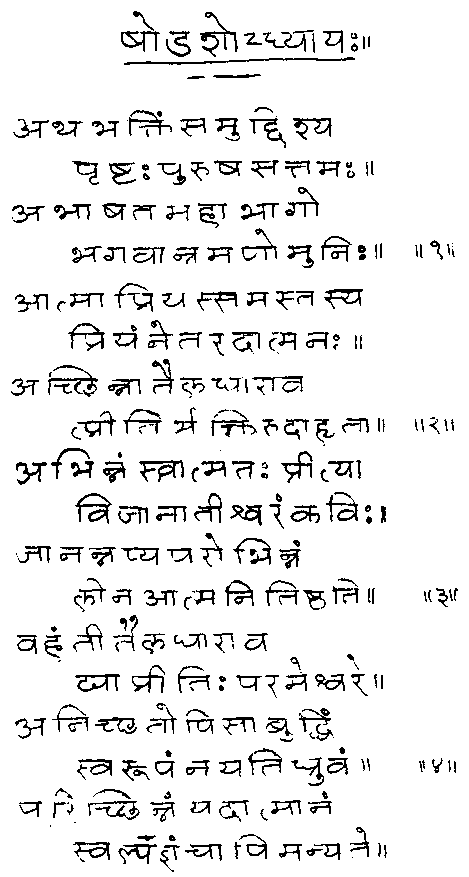 षोडशोऽध्यायः॥
अथ भक्तिं समुद्दिश्य
पृष्टः पुरुषसत्तमः॥
अभाषत महाभागो
भगवान्रमणो मुनिः॥ ॥१॥
आत्मा प्रियस्समस्तस्य
प्रियं नेतरदात्मनः॥
अच्छिन्ना तैलधाराव
त्प्रीतिर्भक्तिरुदाहृता॥ ॥२॥
अभिन्नं स्वात्मतः प्रीत्या
विजानातीश्वरं कविः॥
जानन्नप्यपरो भिन्नं
लीन आत्मनि तिष्ठति॥ ॥३॥
वहंती तैलधाराव
द्या प्रीतिः परमेश्वरे॥
अनिच्छतोपि सा बुद्धिं
स्वरूपं नयति ध्रुवं॥ ॥४॥
परिच्छिन्नं यदात्मानं
स्वल्पज्ञंचापि मन्यते॥